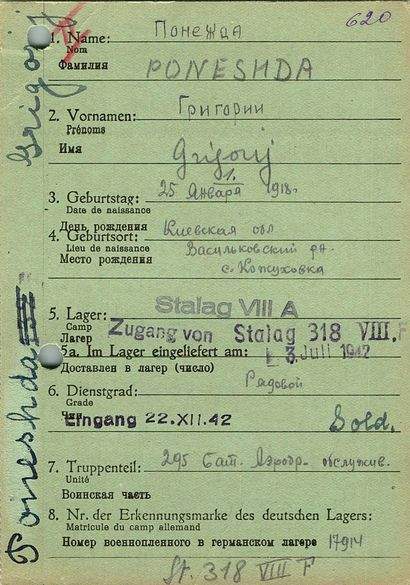 Понежда
620
1. Name:
Nom
Фамилия
PONESHDA
Григорий
2. Vornamen:
Prénoms
Имя
Grigorij
1.
25 Января 1918г
3. Geburtstag:
Date de naissance
День рождения
Киевская обл
4. Geburtsort:
Lieu de naissance
Место рождения
Васильковский р-н
с. Кожуховка
Stalag VIII A
5. Lager:
Camp
Лагер
Zugang von Stalag 318 VIII. F
5a. Im Lager eingeliefert am: 3. Juli 1942
Доставлен в лагер (число)
Рядовой
6. Dienstgrad:
Grade
Чин
Eingang 22. XII. 42
Sold.
295 бат. Аэродр. обслужив.
7. Truppenteil:
Unité
Воинская часть
8. Nr. der Erkennungsmarke des deutschen Lagers:
Matricule du camp allemand
Номер военнопленного в германском лагере 17914
St. 318 VIII F
Poneshda
Grigorij